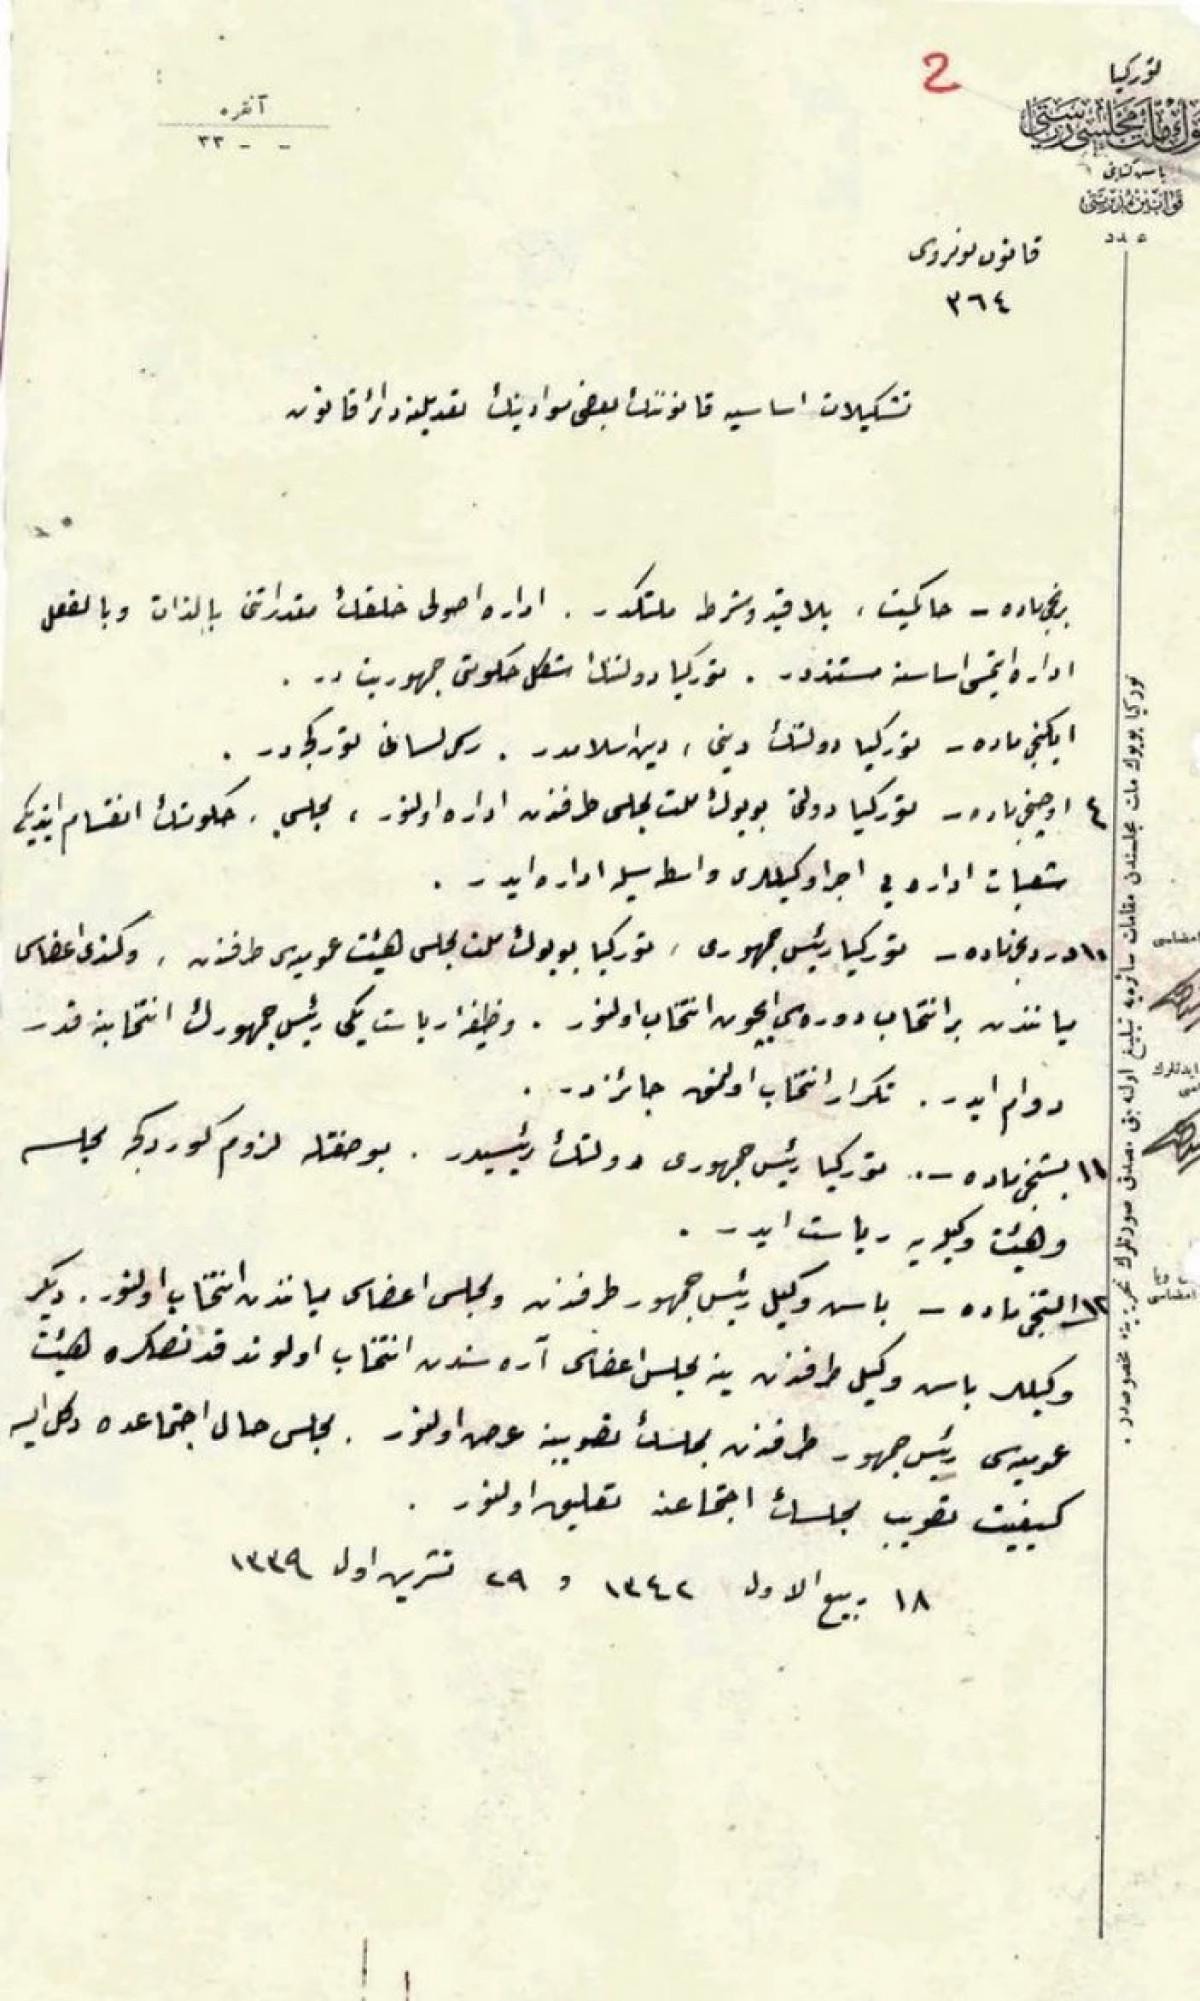 توركيا
بيوك ملت مجلسى رياستى
باش كتابتى
قوانين مديريتى
عدد
2
آنقره
٣٣ - -
قانون نومروسى
٣٦٤
تشكيلات اساسيه قانوننك بعض موادينك تعديلنه دائر قانون
برنجى ماده – حاكميت ، بلا قيد و شرط ملتكدر . اداره اصولى خلقك مقدراتنى بالذات و بالفعل
اداره ايتمسى اساسنه مستنددر . توركيا دولتنك شكل حكومتى جمهوريت در .
ايكنجى ماده – توركيا دولتنك دينى ، دين اسلامدر . رسمى لسانى توركجه در .
٤ اوچنجى ماده – توركيا دولتى بويوك ملت مجلسى طرفندن اداره اولنور ، مجلس ، حكومتك انقسام ايتديكى
شعبات اداره يى اجرا وكيللرى واسطه سيله اداره ايدر .
١٠ دردنجى ماده – توركيا رئيس جمهورى ، توركيا بويوك ملت مجلسى هيئت عموميه سى طرفندن ، و كندى اعضاسى
ميانندن بر انتخاب دوره سى ايچون انتخاب اولنور . وظيفه رياست يكى رئيس جمهورك انتخابنه قدر
دوام ايدر . تكرار انتخاب اولنمق جائزدر .
١١ بشنجى ماده – توركيا رئيس جمهورى دولتك رئيسيدر . بو صفتله لزوم كوردكجه مجلسه
و هيئت وكيليه رياست ايدر .
١٢ آلتنجى ماده – باش وكيل رئيس جمهور طرفندن و مجلس اعضاسى ميانندن انتخاب اولنور . ديكر
وكيللر باش وكيل طرفندن ينه مجلس اعضاسى آره سندن انتخاب اولوندقدنصكره هيئت
عموميه سى رئيس جمهور طرفندن مجلسك تصويبنه عرض اولنور . مجلس حال اجتماعده دكل ايسه
كيفيت تصويب مجلسك اجتماعنه تعليق اولنور .
١٨ ربيع الاول ١٣٤٢ و ٢٩ تشرين اول ١٣٣٩
توركيا بويوك ملت مجلسندن مقامات سائره يه تبليغ اولنه جق مصدق صورتلرك تحريرينه مخصوصدر .
امضاسى
ايدنلرك
امضاسى